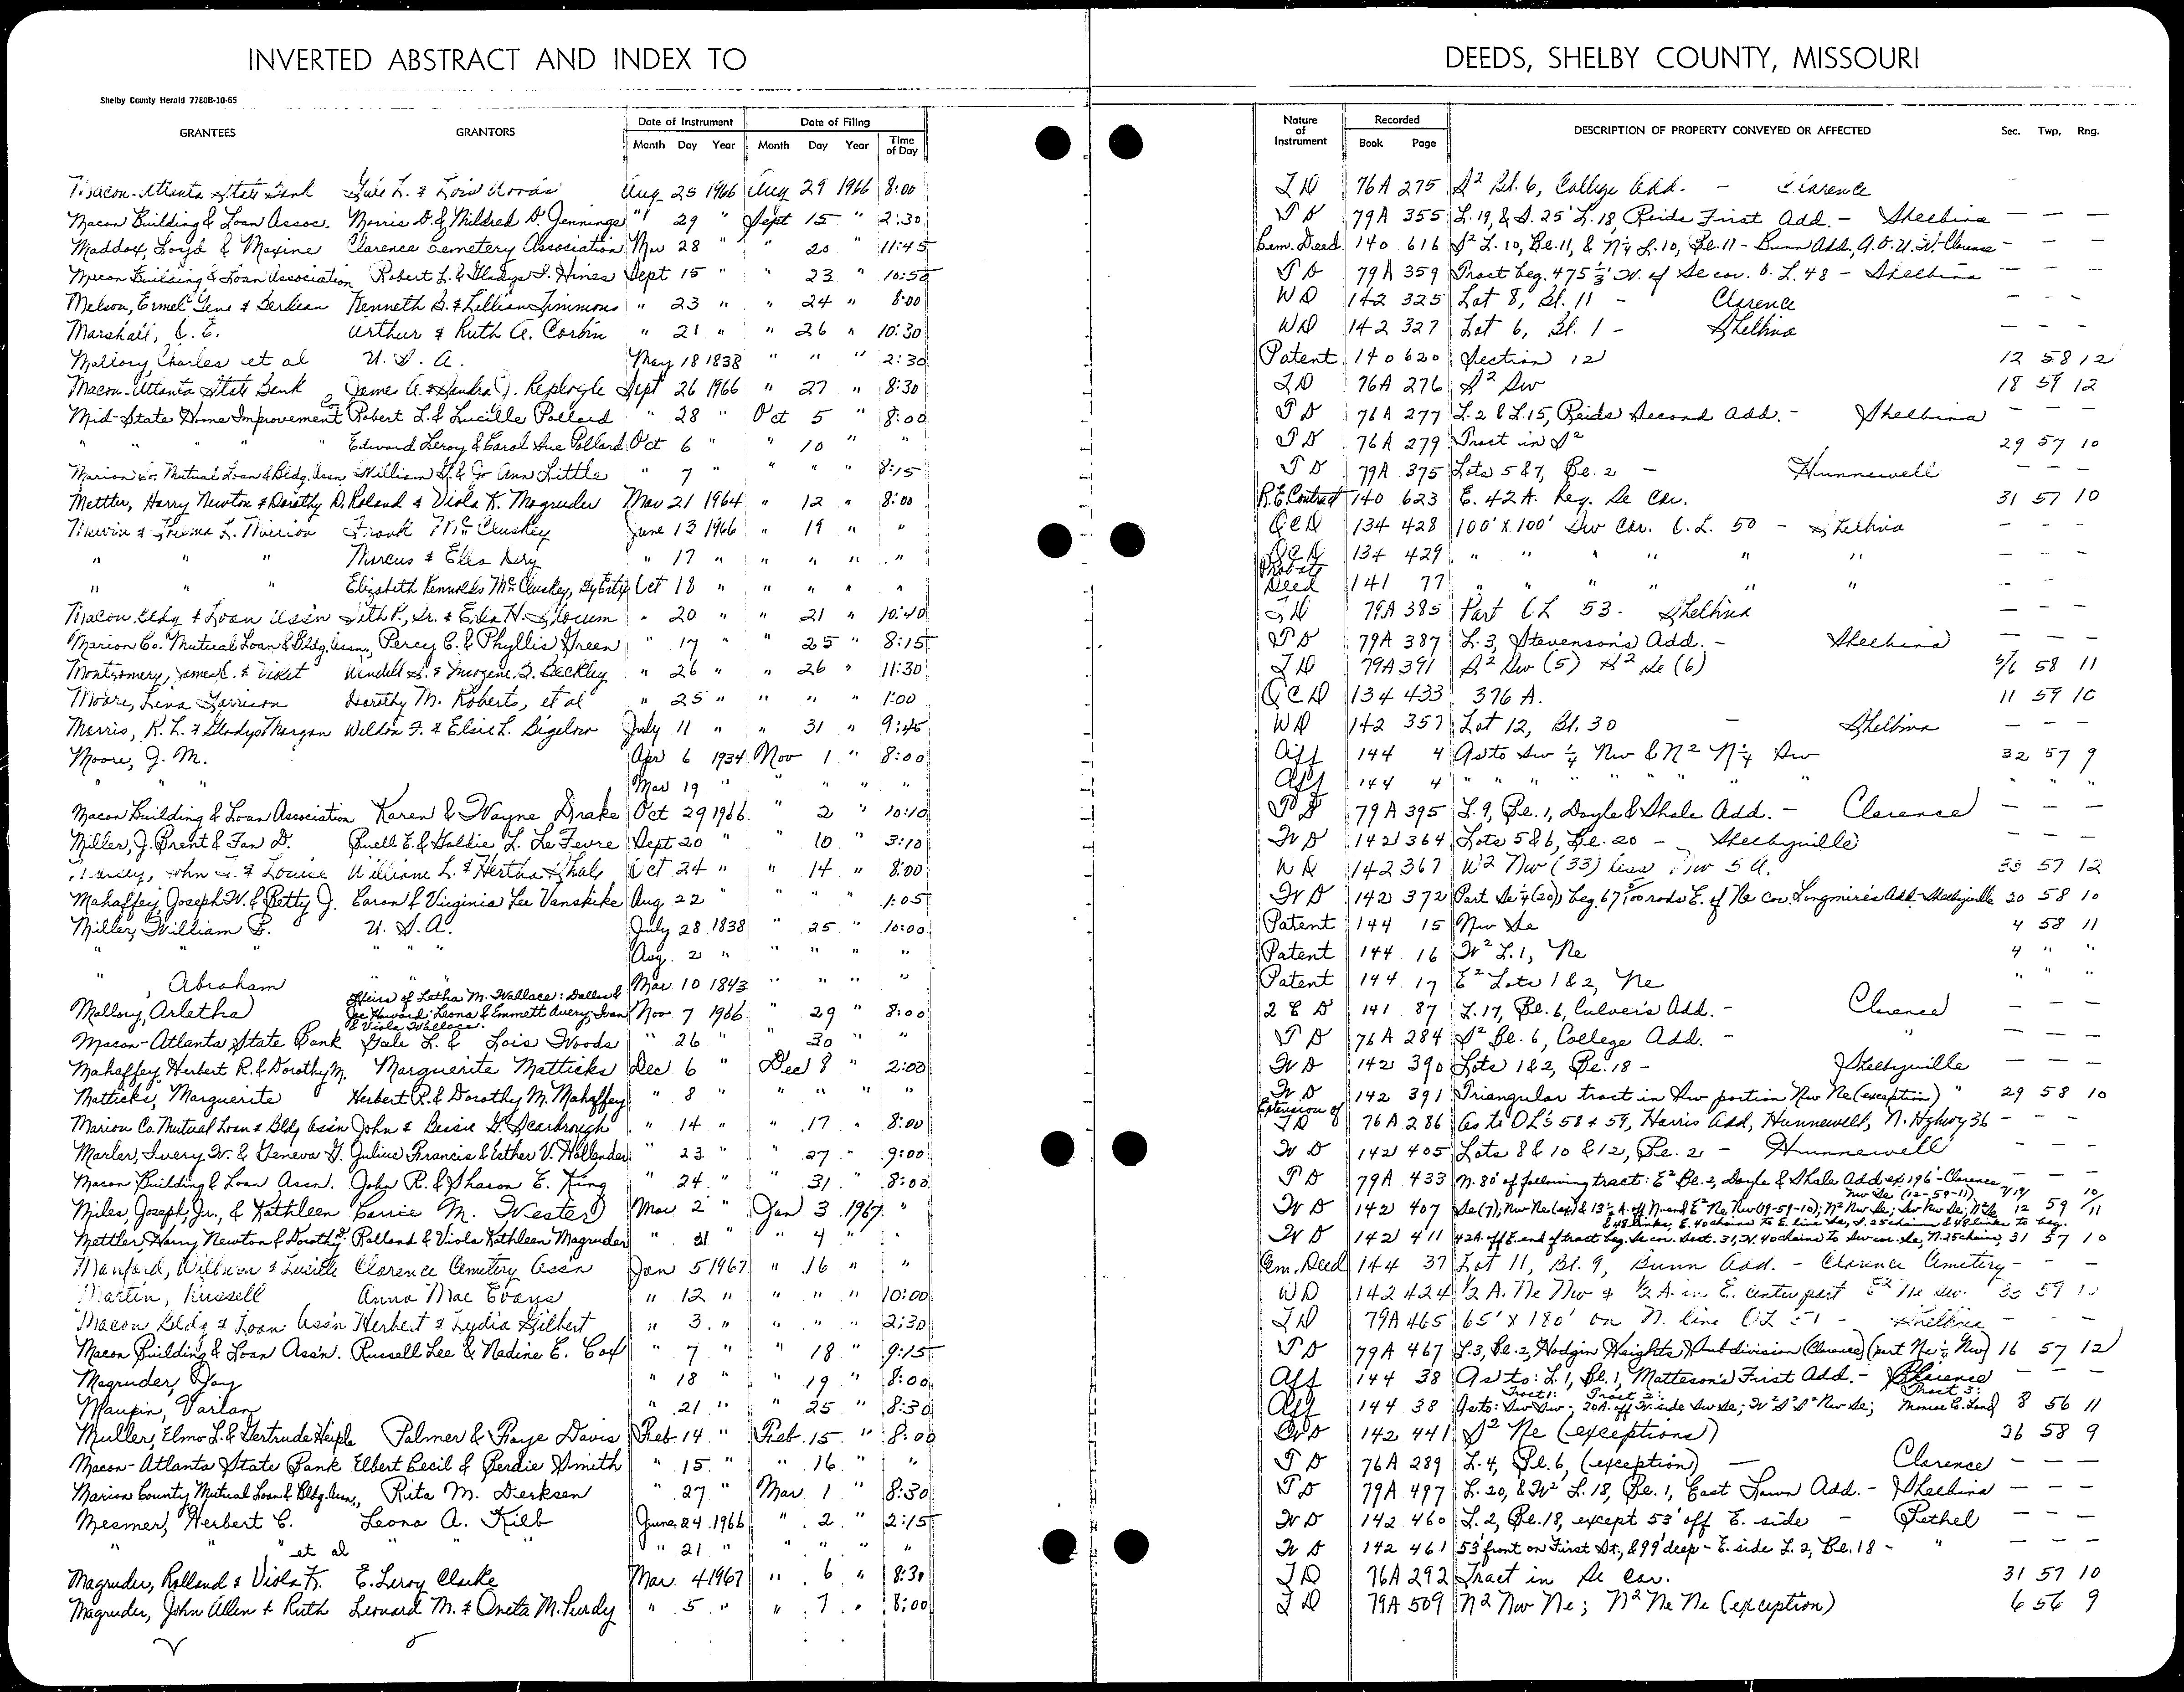 INVERTED ABSTRACT AND INDEX TO DEEDS, SHELBY COUNTY, MISSOURI
Shelby County Herald 7780B-10-65
GRANTEES GRANTORS Date of Instrument Date of Filing Nature of Instrument Recorded DESCRIPTION OF PROPERTY CONVEYED OR AFFECTED Sec. Twp. Rng.
Month Day Year Month Day Year Time of Day Book Page
Macon-Atlanta State Bank Gale L. & Lois Woods Aug 25 1966 Aug 29 1966 8:00 T D 76A 275 S2 Bl. 6, College Add. - Clarence
Macon Building & Loan Assoc. Morris D. & Mildred D. Jennings " 29 " Sept 15 " 2:30 T D 79A 355 L. 19, & S. 25' L. 18, Reids First Add. - Shelbina — — —
Maddox, Loyd & Maxine Clarence Cemetery Association Mar 28 " " 20 " 11:45 Cem. Deed 140 616 S2 L. 10, Bl. 11, & N 1/4 L. 10, Bl. 11 - Bunn Add, - Clarence - — —
Macon Building & Loan Association Robert L. & Gladys I. Hines Sept 15 " " 23 " 10:50 T D 79A 359 Tract beg. 475 1/3' W. of Se cor. O. L. 48 - Shelbina — — —
Melson, Ermel Gene & Berdean Kenneth B. & Lillian Timmons " 23 " " 24 " 8:00 W D 142 325 Lot 8, Bl. 11 - Clarence - - -
Marshall, C. E. Arthur & Ruth A. Corbin " 21 " " 26 " 10:30 W D 142 327 Lot 6, Bl. 1 - Shelbina — — —
Mallory, Charles et al U. S. A. May 18 1838 " " " 2:30 Patent 140 620 Section 12 12 58 12
Macon-Atlanta State Bank James A. & Sandra J. Replogle Sept 26 1966 " 27 " 8:30 T D 76A 276 S2 Sw 18 59 12
Mid-State Home Improvement Co. Robert L. & Lucille Pollard " 28 " Oct 5 " 8:00 T D 76A 277 L. 2 & L. 15, Reids Second Add. - Shelbina — — —
" " " " Edward Leroy & Carol Sue Pollard Oct 6 " 10 " " T D 76A 279 Tract in S2 29 57 10
Marion Co. Mutual Loan & Bldg. Assn. William G. & Jo Ann Little " 7 " " " 8:15 T D 79A 375 Lots 5 & 7, Bl. 2 - Hunnewell — — —
Mettler, Harry Newton & Dorothy D. Roland & Viola K. Magruder Mar 21 1964 " 12 " 8:00 R.E. Contract 140 623 E. 42 A. beg. Se Cor. 31 57 10
Mervin & L. Frank McCluskey June 13 1966 " 19 " " Q C D 134 428 100' X 100' Sw Cor. O. L. 50 - Shelbina — — —
" " " Marcus & Ella " 17 " " " " " Q C D 134 429 " " " " " " — — —
" " " Elizabeth McCluskey, By Oct 18 " " " " " Probate Deed 141 77 " " " " " " — — —
Macon Bldg & Loan Ass'n Seth P., Sr. & Eda H. Slocum " 20 " " 21 " 10:40 T D 79A 385 Part OL 53. Shelbina — — —
Marion Co. Mutual Loan & Bldg. Assn., Percy C. & Phyllis Green " 17 " 25 " 8:15 T D 79A 387 L. 3, Stevenson's Add. - Shelbina — — —
Montgomery, James C. & Violet Wendell & Imogene D. Beckley " 26 " " 26 " 11:30 T D 79A 391 S2 Sw (5) S2 Se (6) 5/6 58 11
Moore, Lena Garrison Dorothy M. Roberts, et al " 25 " " " " 1:00 Q C D 134 433 376 A. 11 59 10
Morris, K. L. & Gladys Morgan Weldon F. & Elsie L. Bigelow July 11 " " 31 " 9:45 W D 142 357 Lot 12, Bl. 30 - Shelbina — — —
Moore, J. M. Apr 6 1934 Nov 1 " 8:00 Aff 144 4 As to Sw 1/4 Nw & N2 N 1/4 Sw 32 57 9
" " " Mar 19 " " " " " Aff 144 4 " " " " " " " " " "
Macon Building & Loan Association Karen & Wayne Drake Oct 29 1966 " 2 " 10:10 T D 79A 395 L. 9, Bl. 1, Doyle & Shale Add. - Clarence — — —
Miller, J. Brent & Fan D. Buell E. & Goldie L. LeFevre Sept 20 " " 10 " 3:10 W D 142 364 Lots 5 & 6, Bl. 20 - Shelbyville — — —
John & Louise William L. & Hertha Shale Oct 24 " " 14 " 8:00 W D 142 367 W2 Nw (33) less Nw 5 A. 33 57 12
Mahaffey, Joseph W. & Betty J. Caron & Virginia Lee Vanskike Aug 22 " " " 1:05 W D 142 372 Part Se 1/4 (20) beg. 67 /100 rods E. of Ne cor. Longmire's Add - Shelbyville 20 58 10
Miller, William B. U. S. A. July 28 1838 " 25 " 10:00 Patent 144 15 Nw Se 4 58 11
" " " " " Aug. 2 " " " " " Patent 144 16 W2 L. 1, Ne 4 " "
" , Abraham " " " Mar 10 1843 " " " " Patent 144 17 E2 Lots 1 & 2, Ne " " "
Mallory, Arletha Heirs of Letha M. Wallace: Dallas & Joe Howard; Leona & Emmett Avery; Ivan & Viola Wallace. Nov 7 1966 " 29 " 8:00 Q C D 141 87 L. 17, Bl. 6, Culver's Add. - Clarence — — —
Macon-Atlanta State Bank Gale L. & Lois Woods " 26 " " 30 " " T D 76A 284 S2 Bl. 6, College Add. - " — — —
Mahaffey, Herbert R. & Dorothy M. Marguerite Matticks Dec 6 " Dec 8 " 2:00 W D 142 390 Lots 1 & 2, Bl. 18 - Shelbyville — — —
Matticks, Marguerite Herbert R. & Dorothy M. Mahaffey " 8 " " " " " W D 142 391 Triangular tract in Sw portion Nw Ne (exception) " 29 58 10
Marion Co. Mutual Loan & Bldg Ass'n John & Bessie G. Scarbrough " 14 " " 17 " 8:00 Extension of T D 76A 286 As to OL's 58 & 59, Harris Add, Hunnewell, N. Hghwy 36 - — —
Marler, Ivery W. & Geneva G. Julius Francis & Esther V. Hollender " 23 " " 27 " 9:00 W D 142 405 Lots 8 & 10 & 12, Bl. 2 - Hunnewell — — —
Macon Building & Loan Assn. John R. & Sharon E. King " 24 " " 31 " 8:00 T D 79A 433 N. 80' of following tract: E2 Bl. 2, Doyle & Shale Add ex 196' - Clarence — — —
Miles, Joseph Jr., & Kathleen Carrie M. Wester Mar 2 " Jan 3 1967 " W D 142 407 Se (7); Nw Ne & 13 1/2 A. off N. end E2 Ne Nw (19-59-10); N2 Nw Se; Sw Nw Se; Nw Se (12-59-11) 7/19/12 59 10/11
Mettler, Harry Newton & Dorothy D. Rolland & Viola Kathleen Magruder " 31 " 4 " " W D 142 411 42A. off E. end of tract beg. Se cor. Sect. 31, W. 40 chains to Sw cor. Se, N. 25 chains & 48 links, E. 40 chains to E. line Se, S. 25 chains & 48 links to beg. 31 57 10
Manford, William & Lucille Clarence Cemetery Ass'n Jan 5 1967 " 16 " " Cem. Deed 144 37 Lot 11, Bl. 9, Bunn Add. - Clarence Cemetery - - -
Martin, Russell Anna Mae Evans " 12 " " " " 10:00 W D 142 424 1/2 A. Ne Nw & 1/2 A. in E. center part E2 Ne Sw 59
Macon Bldg & Loan Ass'n Herbert & Lydia Gilbert " 3 " " " " 2:30 T D 79A 465 65' X 180' on N. line OL 51 - Shelbina - - -
Macon Building & Loan Ass'n. Russell Lee & Nadine E. Cox " 7 " " 18 " 9:15 T D 79A 467 L. 3, Bl. 2, Hodgin Heights Subdivision (Clarence) (part Ne 1/4 Nw) 16 57 12
Magruder, Jay " 18 " " 19 " 8:00 Aff 144 38 As to: L. 1, Bl. 1, Matteson's First Add. - Clarence — — —
Maupin, Varlan " 21 " " 25 " 8:30 Aff 144 38 As to: Tract 1: Sw Sw; Tract 2: 20A. off W. side Sw Se; W2 S2 S2 Nw Se; Tract 3: Monroe C. Land 8 56 11
Muller, Elmo L. & Gertrude Heiple Palmer & Faye Davis Feb 14 " Feb 15 " 8:00 W D 142 441 S2 Ne (exceptions) 26 58 9
Macon-Atlanta State Bank Elbert Cecil & Berdie Smith " 15 " " 16 " " T D 76A 289 L. 4, Bl. 6, (exception) — Clarence — — —
Marion County Mutual Loan & Bldg. Assn., Rita M. Derksen " 27 " Mar 1 " 8:30 T D 79A 497 L. 20, & W2 L. 18, Bl. 1, East Lawn Add. - Shelbina — — —
Mesmer, Herbert C. Leona A. Kilb June 24 1966 " 2 " 2:15 W D 142 460 L. 2, Bl. 18, except 53' off E. side - Bethel — — —
" " " et al " 21 " " " " " W D 142 461 53' front on First St., & 99' deep - E. side L. 2, Bl. 18 - " — — —
Magruder, Rolland & Viola K. E. Leroy Clarke Mar. 4 1967 " 6 " 8:30 T D 76A 292 Tract in Se Cor. 31 57 10
Magruder, John Allen & Ruth Leonard M. & Oneta M. Purdy " 5 " " 7 " 8:00 T D 79A 509 N2 Nw Ne; N2 Ne Ne (exception) 6 56 9